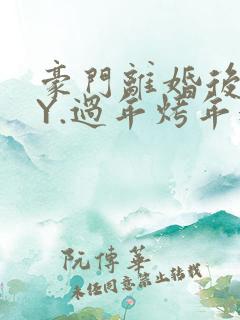 豪門離婚後
Y.過年烤年
阮傳華
未经同意禁止转载